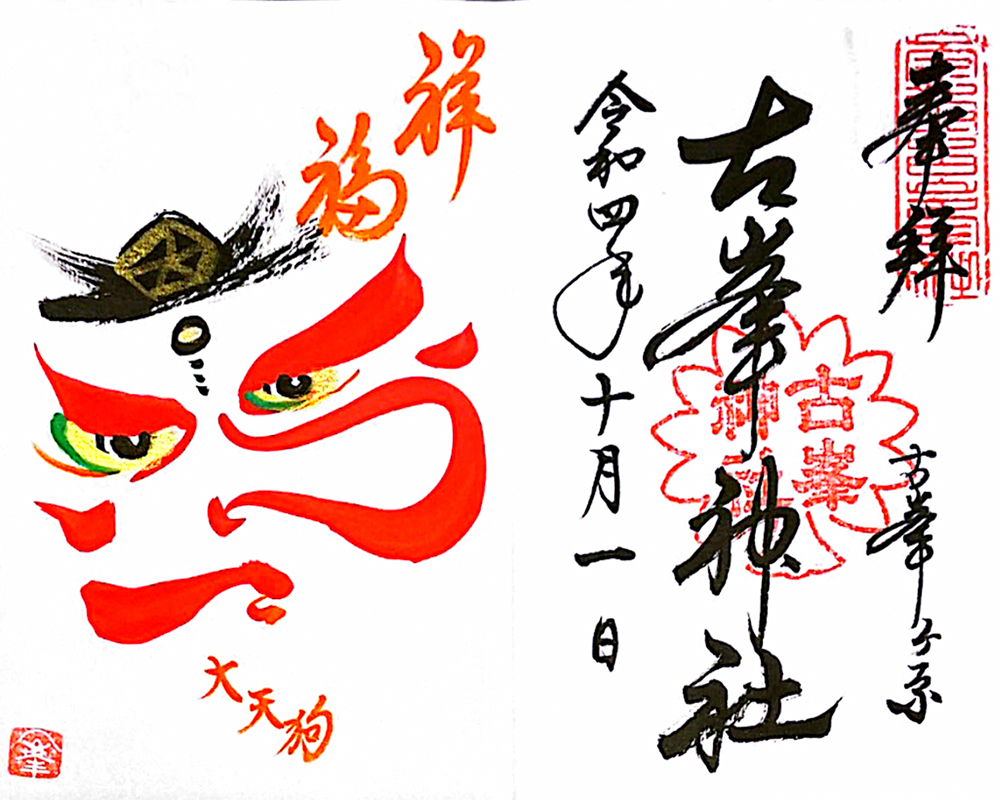 奉拝
古峯ケ原
古峯神社
古峯
神社
令和四年十月一日
祥福
大天狗
峯